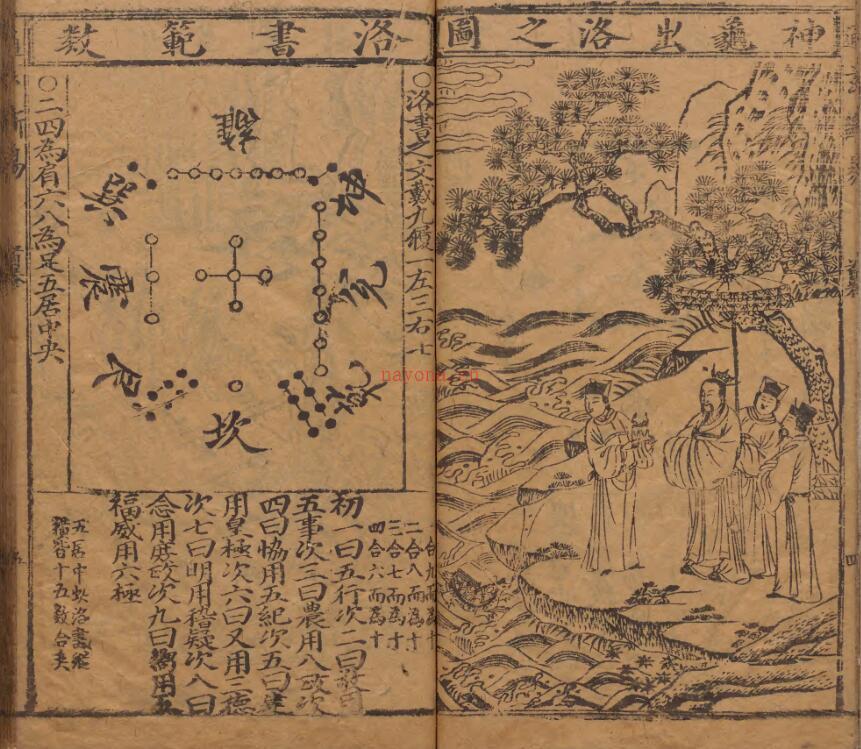 神龜出洛之圖
洛書範数
○洛書之文戴九履一左三右七
離
坤
兌
乾
坎
艮
震
巽
○二四為有六八為足五居中央
一合九而為十
二合八而為十
三合七而為十
四合六而為十
初一曰五行次二曰敬用
五事次三曰農用八政次
四曰協用五紀次五曰建
用皇極次六曰乂用三德
次七曰明用稽疑次八曰
念用庶政次九曰嚮用五
福威用六極
五居中央洛書縱
橫皆十五數合矣
navona.cn